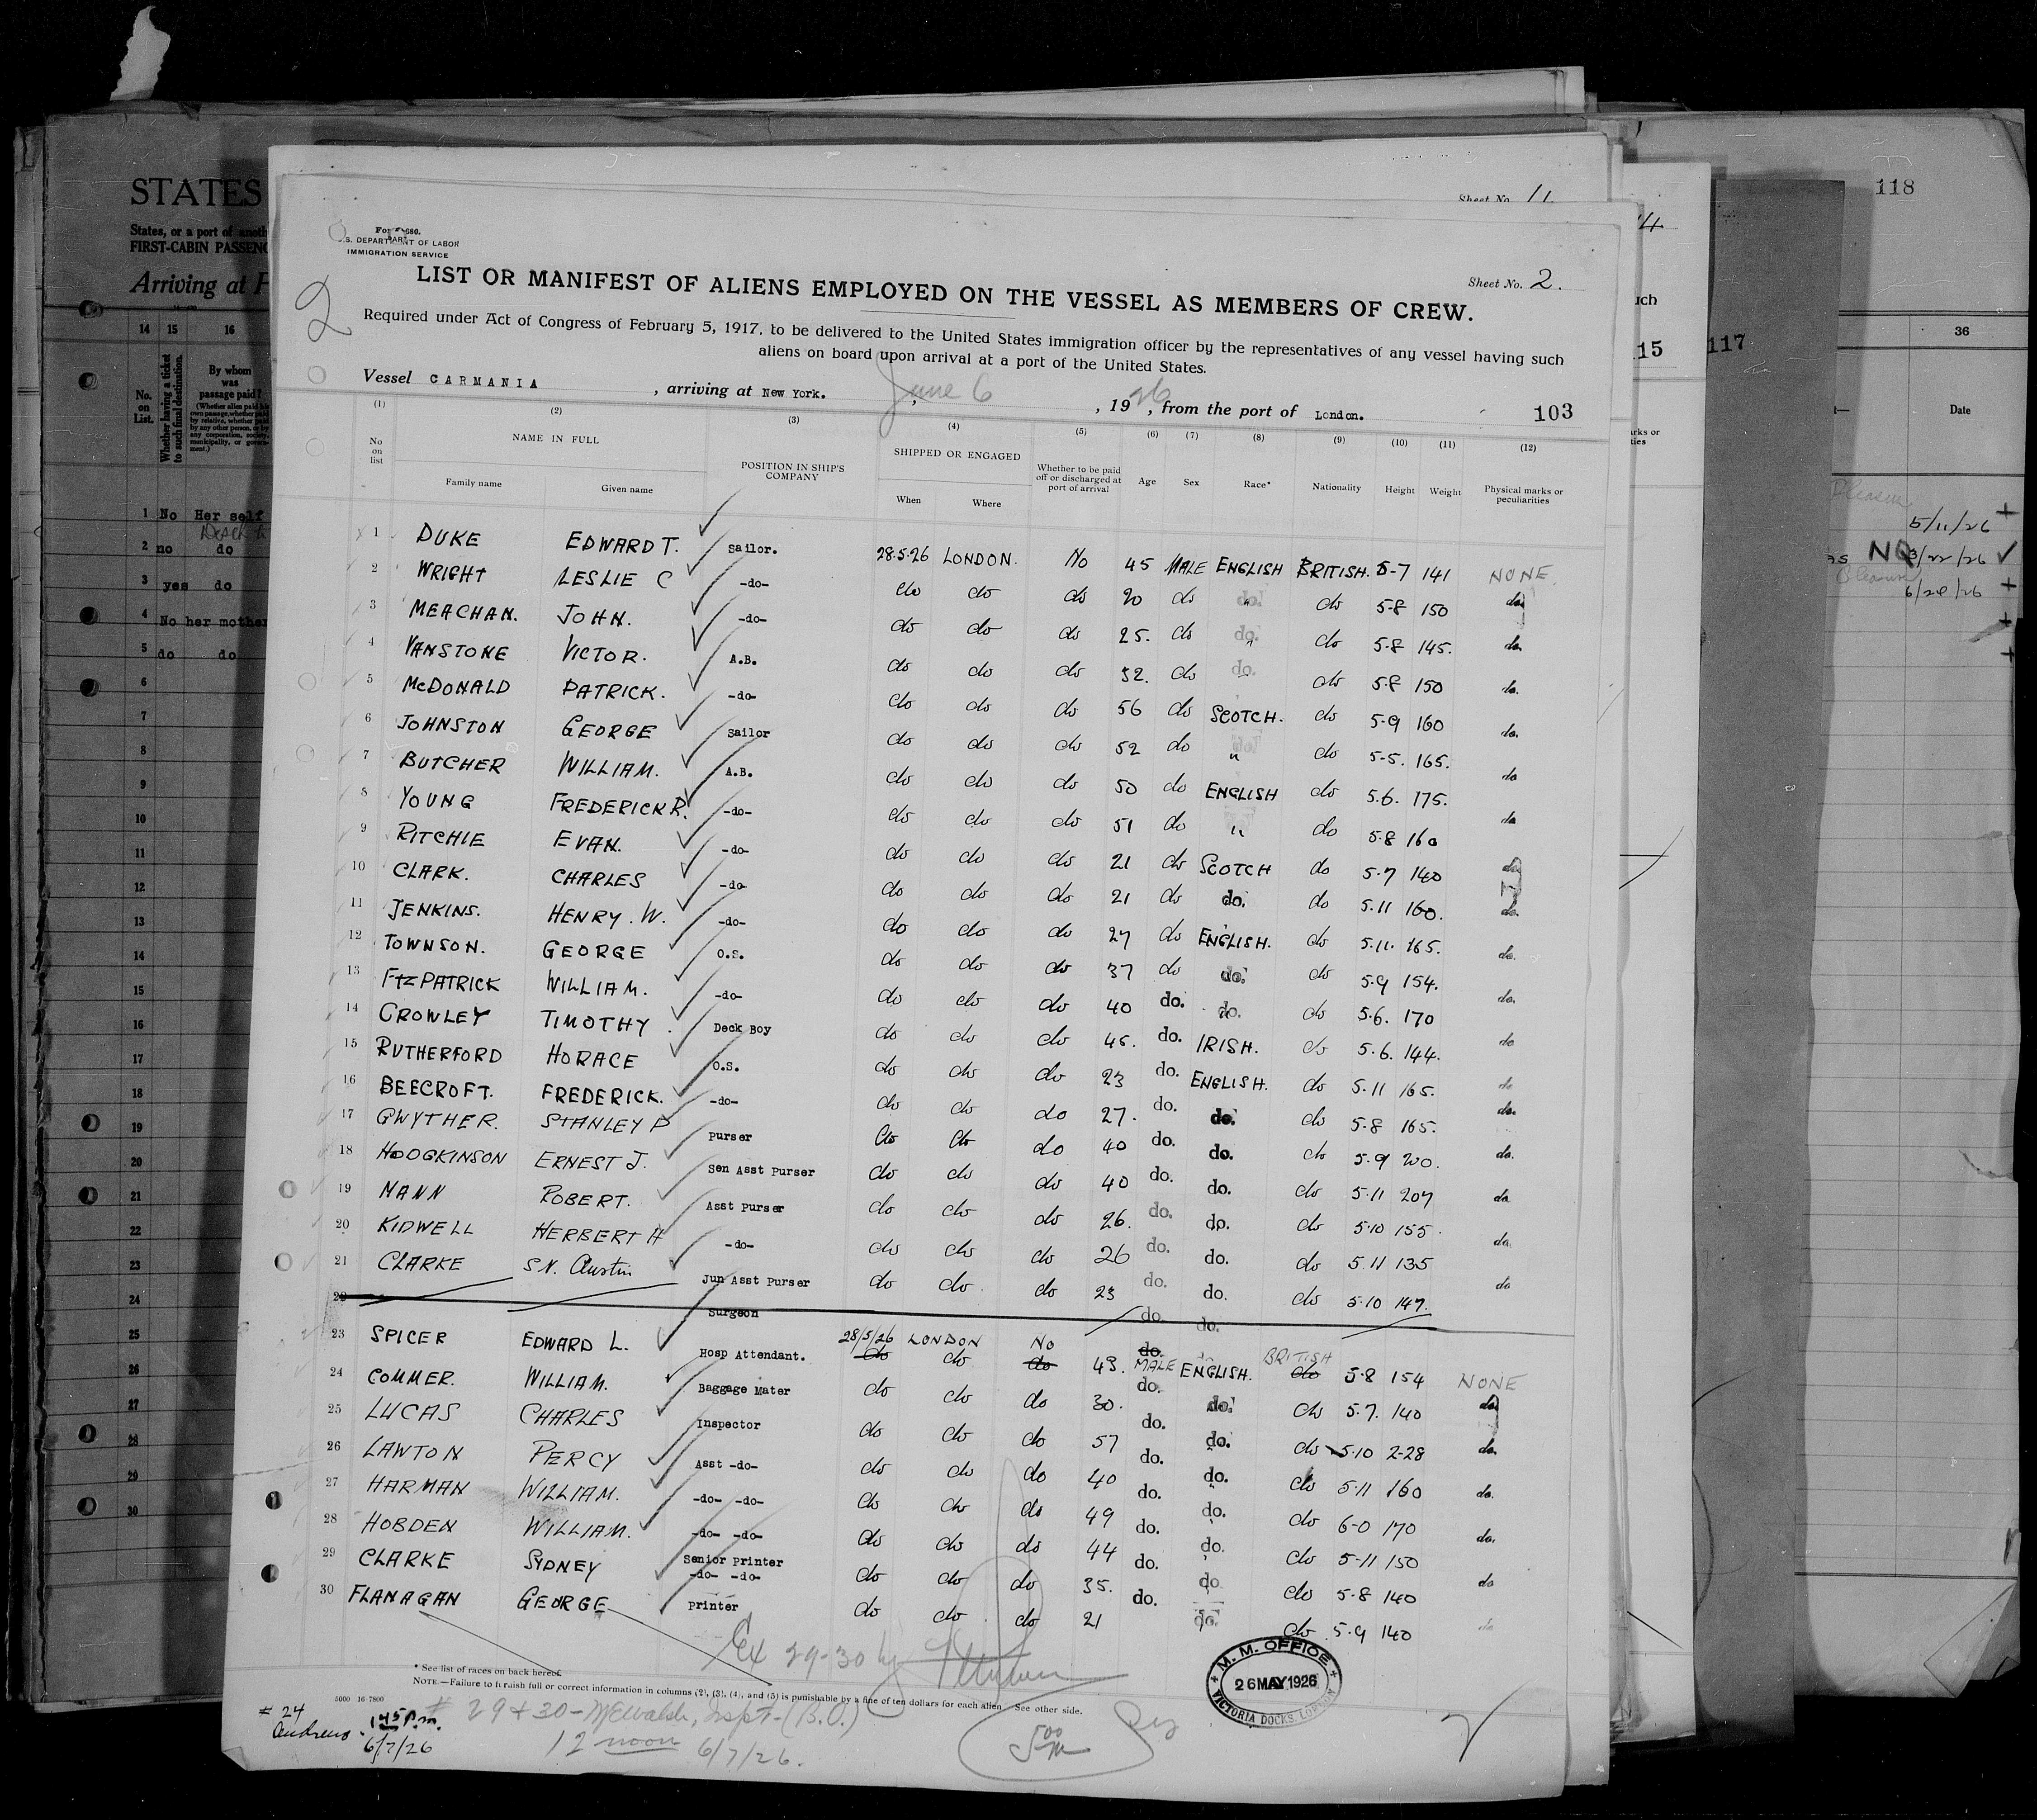 118
Sheet No. 11
14
STATES
States, or a port of anoth
FIRST-CABIN PASSENG
Arriving at P
U.S. DEPARTMENT OF LABOR
IMMIGRATION SERVICE
2
LIST OR MANIFEST OF ALIENS EMPLOYED ON THE VESSEL AS MEMBERS OF CREW.
Sheet No. 2.
Required under Act of Congress of February 5, 1917, to be delivered to the United States immigration officer by the representatives of any vessel having such
aliens on board upon arrival at a port of the United States.
Vessel CARMANIA, arriving at New York. June 6, 1926, from the port of London.
103
115
117
(1) (2) (3) (4) (5) (6) (7) (8) (9) (10) (11) (12)
No on list
NAME IN FULL
Family name Given name
POSITION IN SHIP'S COMPANY
SHIPPED OR ENGAGED
When Where
Whether to be paid off or discharged at port of arrival
Age Sex Race* Nationality Height Weight Physical marks or peculiarities
1 DUKE EDWARD T. Sailor. 28.5.26 LONDON. No 45 MALE ENGLISH BRITISH. 5-7 141 NONE.
2 WRIGHT LESLIE C -do- do do do 20 do " do 5-8 150 do.
3 MEACHAN. JOHN. -do- do do do 25. do " do 5-8 145. do.
4 VANSTONE VICTOR. A.B. do do do 32. do do. do 5-8 150 do.
5 McDONALD PATRICK. -do- do do do 56 do SCOTCH. do 5-9 160 do.
6 JOHNSTON GEORGE Sailor do do do 52 do " do 5-5. 165. do
7 BUTCHER WILLIAM. A.B. do do do 50 do ENGLISH do 5.6. 175. do
8 YOUNG FREDERICK R. -do- do do do 51 do " do 5-8 160 do
9 RITCHIE EVAN. -do- do do do 21 do SCOTCH do 5.7 140 do
10 CLARK. CHARLES -do- do do do 21 do do. do 5.11 160. do.
11 JENKINS. HENRY. W. -do- do do do 27 do ENGLISH. do 5.11. 165. do.
12 TOWNSON. GEORGE O.S. do do do 37 do do. do 5.9 154. do.
13 FTZPATRICK WILLIAM. -do- do do do 40 do. do. do 5.6. 170 do
14 CROWLEY TIMOTHY. Deck Boy do do do 45. do. IRISH. do 5.6. 144. do
15 RUTHERFORD HORACE O.S. do do do 23 do. ENGLISH. do 5.11 165. do.
16 BEECROFT. FREDERICK. -do- do do do 27. do. do. do 5-8 165. do.
17 GWYTHER. STANLEY P Purser do do do 40 do. do. do 5.9 200. do
18 HODGKINSON ERNEST J. Sen Asst Purser do do do 40 do. do. do 5.11 207 do.
19 MANN ROBERT. Asst Purser do do do 26. do. do. do 5.10 155. do
20 KIDWELL HERBERT H -do- do do do 26 do. do. do 5.11 135
21 CLARKE S.N. Austin Jun Asst Purser do do do 23 do. do. do 5.10 147.
22 Surgeon do. do.
23 SPICER EDWARD L. Hosp Attendant. 28/5/26 LONDON No 43. MALE ENGLISH. BRITISH 5.8 154 NONE
24 COMMER. WILLIAM. Baggage Mater do do do 30. do. do. do 5.7. 140 do.
25 LUCAS CHARLES Inspector do do do 57 do. do. do 5.10 2-28 do.
26 LAWTON PERCY Asst -do- do do do 40 do. do. do 5.11 160 do.
27 HARMAN WILLIAM. -do- -do- do do do 49 do. do. do 6-0 170 do.
28 HOBDEN WILLIAM. -do- -do- do do do 44 do. do. do 5-11 150 do
29 CLARKE SYDNEY Senior Printer -do- -do- do do do 35. do. do. do 5-8 140 do
30 FLANAGAN GEORGE Printer do do do 21 do. do 5.9 140
Ex 29-30 by
* See list of races on back hereof.
NOTE.—Failure to furnish full or correct information in columns (2), (3), (4), and (5) is punishable by a fine of ten dollars for each alien. See other side.
5000 16-7800
# 24
Andrews. 1 45 P.m.
6/7/26
# 29 & 30 - McWalsh, Inspt-(B.O.)
12 noon 6/7/26.
M. M. OFFICE
26 MAY 1926
VICTORIA DOCKS, LONDON
14 15 16
No. on List.
Whether having a ticket to such final destination.
By whom was passage paid?
1 No Her self
2 no do
3 yes do
4 No her mother
5 do do
6
7
8
9
10
11
12
13
14
15
16
17
18
19
20
21
22
23
24
25
26
27
28
29
30
36
Date
Pleasure
5/11/26
NO 3/22/26
Pleasure
6/28/26